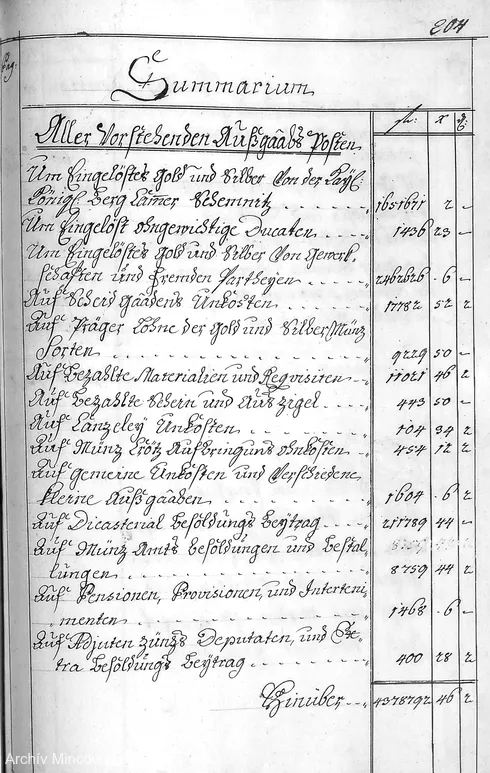 204
Summarium
fl: x ₰:
Aller Vorstehenden Außgaabs Posten
Um Eingelöstes Gold und Silber Von der Kayl:
Königl Berg Camer Schemnitz . . . . 1651671 2 –
Um Eingelöst ohngewichtige Ducaten . . . 1436 23 –
Um Eingelöstes Gold und Silber Von Gewerk,
schafften und fremden Partheyen . . . . 2462626 6 –
Auf Scheid Gaadens Unkosten . . . . 11782 52 2
Auf Präger Löhne der Gold und Silber Münz
Sorten . . . . 9229 50 –
Auf bezahlte Materialien und Requisiten 11021 46 2
Auf bezahlte Schein und Auszigel . . . 443 50 –
Auf Canzeley Unkosten . . . . 104 34 2
Auf Münz Aufbringuns ohnkosten 454 12 2
Auf gemeine Unkosten und Verschiedene
kleine Außgaaben . . . . 1604 6 2
Auf Dicasterial Besoldungs Beytrag . . . 211789 44 –
Auf Münz Amts Besoldungen und Bestal,
lungen . . . . 8759 44 2
Auf Pensionen, Provisionen, und Interteni,
menten . . . . 1468 6 –
Auf Adjuten Deputaten, und Ex,
tra Besoldungs Beytrag . . . . 400 28 2
Hinüber 4378792 46 2
Archív Minco